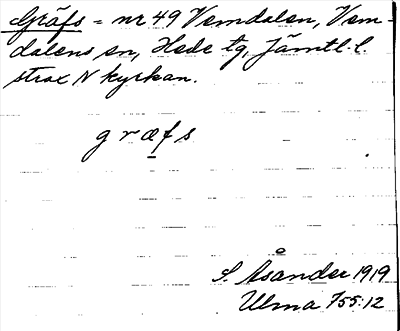 Gräfs = nr 49 Vemdalen, Vem-
dalens sn, Hede tg, Jämtl. l.
strax N kyrkan.
græfs
S. Åsander 1919
Ulma 755:12